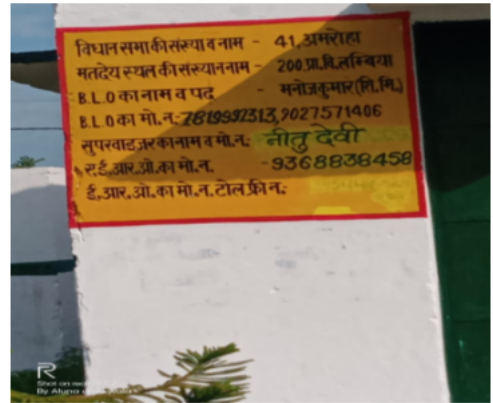 विधान सभा की संख्या व नाम - 41, अमरोहा
मतदेय स्थल की संख्या व नाम - 200. प्रा.वि. लम्बिया
B.L.O का नाम व पद - मनोज कुमार (शि.मि.)
B.L.O का मो.न.: 7819997313, 9027571406
सुपरवाइजर का नाम व मो.न.: नीतु देवी
ए.ई.आर.ओ. का मो.न. - 9368838458
ई.आर.ओ. का मो.न. टोल फ्री न.:
R
Shot on
By Alupa